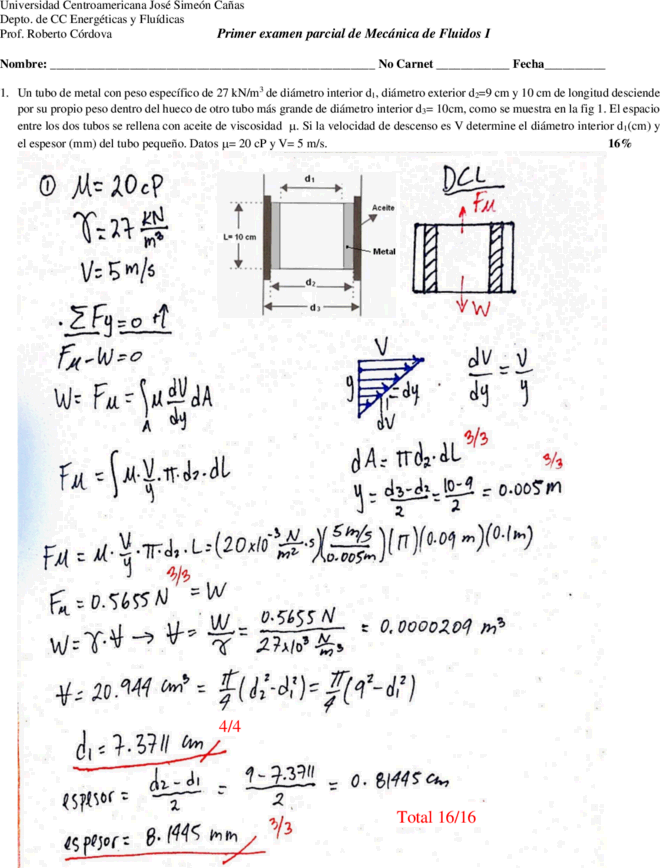 Universidad Centroamericana José Simeón Cañas
Depto. de CC Energéticas y Fluídicas
Prof. Roberto Córdova Primer examen parcial de Mecánica de Fluidos I
Nombre: ____________________ No Carnet ____________ Fecha__________
1. Un tubo de metal con peso específico de 27 kN/m³ de diámetro interior d₁, diámetro exterior d₂=9 cm y 10 cm de longitud desciende
por su propio peso dentro del hueco de otro tubo más grande de diámetro interior d₃= 10cm, como se muestra en la fig 1. El espacio
entre los dos tubos se rellena con aceite de viscosidad μ. Si la velocidad de descenso es V determine el diámetro interior d₁(cm) y
el espesor (mm) del tubo pequeño. Datos μ= 20 cP y V= 5 m/s. 16%
① μ=20cP
γ=27 kN/m³
V=5m/s
d₁
Aceite
L= 10 cm
Metal
d₂
d₃
DCL
Fμ
W
·ΣFy=0 +↑
Fμ-W=0
W= Fμ = ∫A μ dV/dy dA
V
y
dy
dV
dV/dy = V/y
Fμ = ∫ μ·V/y·π·d₂·dL
dA= πd₂·dL 3/3
y= (d₃-d₂)/2 = (10-9)/2 = 0.005m 3/3
Fμ= μ·V/y·π·d₂·L=(20x10⁻³ N/m²·s)(5m/s/0.005m)(π)(0.09m)(0.1m)
3/3
Fμ=0.5655N =W
W=γ·V → V= W/γ = 0.5655 N/27x10³ N/m³ = 0.0000209 m³
V= 20.944 cm³ = π/4(d₂²-d₁²)= π/4(9²-d₁²)
4/4
d₁=7.3711 cm
espesor= (d₂-d₁)/2 = (9-7.3711)/2 = 0.81445 cm
Total 16/16
espesor= 8.1445 mm 3/3